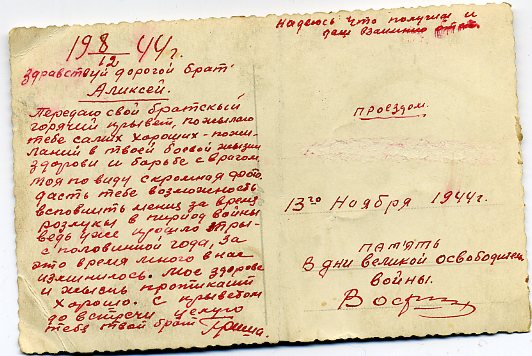 19 8/12 44 г.
Здравствуй дорогой брат
Аликсей.
Передаю свой братский
горячий крывет, пожылаю
тебе самых хороших-поже-
ланий в твоей боевой жызни
здорови и барьбе с врагом.
моя по виду скромная фото
дасть тебе возможность
вспомнить меня за время
розлуки в период войны
ведь уже прошло три-
с половинной года, За
это время много в нас
изминилось. Мое здорове
и жызнь протикаит
Хорошо. С крыветом
до встречи целую
тебя твой брат Гриша.
Надеюсь что получиш и
даш Взаимно
проездом.
13го Ноября 1944г.
ПАМЯТЬ
В дни великой освободител
войны.